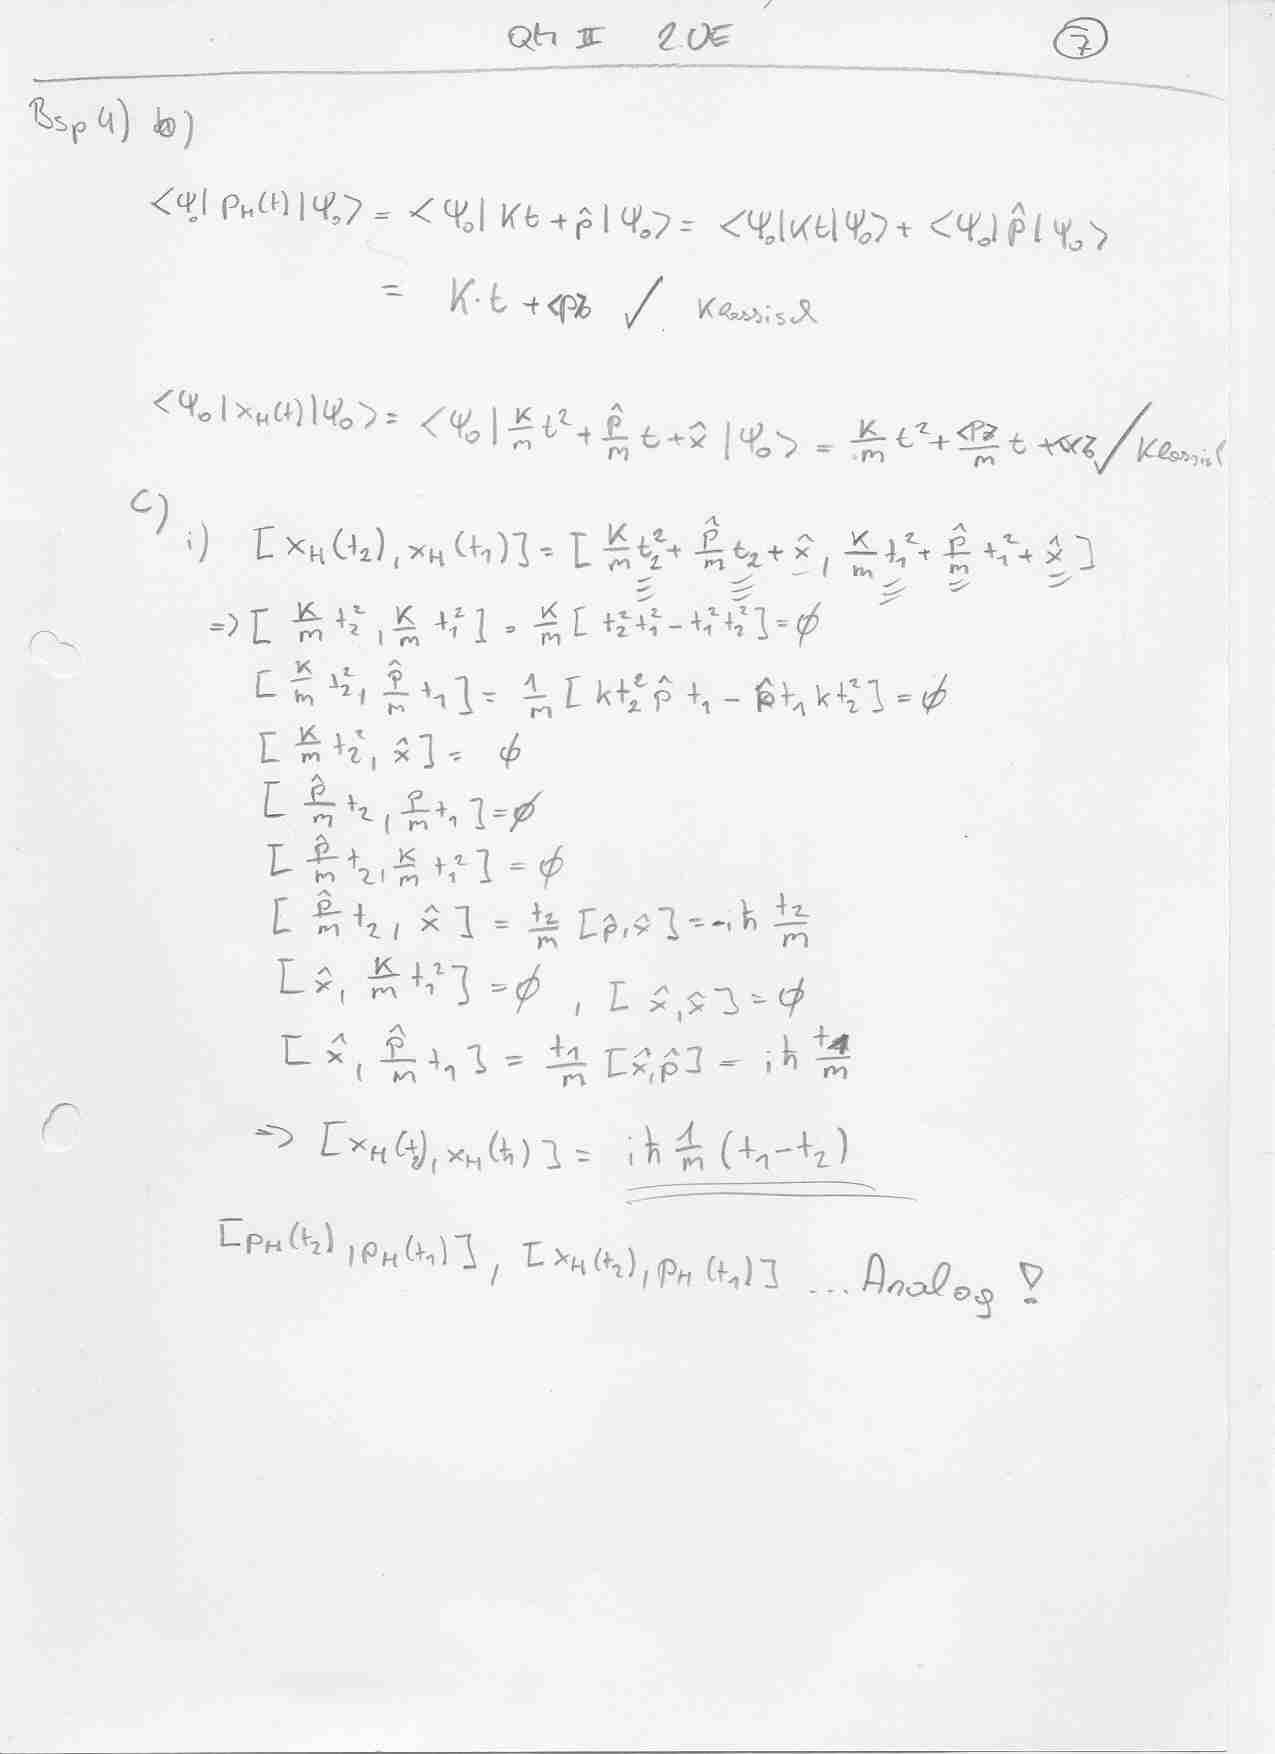 QM II 2.UE 7
Bsp 4) b)
<Ψ₀| p_H(t) |Ψ₀> = <Ψ₀| Kt + p̂ |Ψ₀> = <Ψ₀|Kt|Ψ₀> + <Ψ₀| p̂ |Ψ₀>
= K·t + <p> / Klassisch
<Ψ₀| x_H(t) |Ψ₀> = <Ψ₀| K/m t² + p̂/m t + x̂ |Ψ₀> = K/m t² + <p>/m t + <x> / Klassisch
c)
i) [x_H(t₂), x_H(t₁)] = [K/m t₂² + p̂/m t₂ + x̂, K/m t₁² + p̂/m t₁² + x̂]
=> [K/m t₂², K/m t₁²] = K/m [t₂²t₁² - t₁²t₂²] = ∅
[K/m t₂², p̂/m t₁] = 1/m [kt₂² p̂ t₁ - p̂t₁ kt₂²] = ∅
[K/m t₂², x̂] = ∅
[p̂/m t₂, p/m t₁] = ∅
[p̂/m t₂, K/m t₁²] = ∅
[p̂/m t₂, x̂] = t₂/m [p̂, x̂] = -iħ t₂/m
[x̂, K/m t₁²] = ∅ , [x̂, x̂] = ∅
[x̂, p̂/m t₁] = t₁/m [x̂, p̂] = iħ t₁/m
=> [x_H(t₂), x_H(t₁)] = iħ 1/m (t₁ - t₂)
[p_H(t₂), p_H(t₁)], [x_H(t₂), p_H(t₁)] ... Analog !